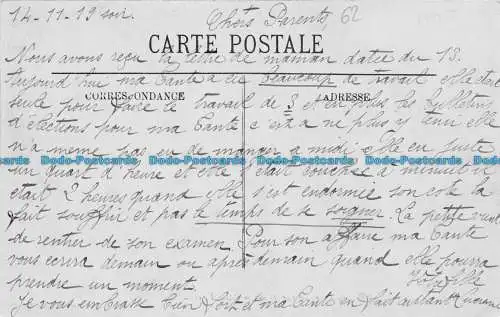 14-11-19 soir.
Chers Parents, 62
CARTE POSTALE
Nous avons reçu la lettre de maman datée du 13.
Aujourd'hui ma Tante a eu beaucoup de travail elle était
CORRESPONDANCE ADRESSE
seule pour faire le travail de 3 et en plus les bulletins
d'élections pour ma Tante c'est a ne plus y tenir elle
n'a même pas eu de manger a midi elle en juste
Dodo-Postcards Dodo-Postcards Dodo-Postcards Dodo-Postcards Dodo-Postcards
un quart d'heure et elle s'était couchée a minuit
était 2 heures quand elle s'est endormie son côté la
fait souffrir et pas le temps de se soigner. La petite vient
de rentrer de son examen. Pour son affaire ma Tante
vous écrira demain ou après demain quand elle pourra
prendre un moment. Votre fille
Je vous embrasse bien fort et ma Tante en fait autant